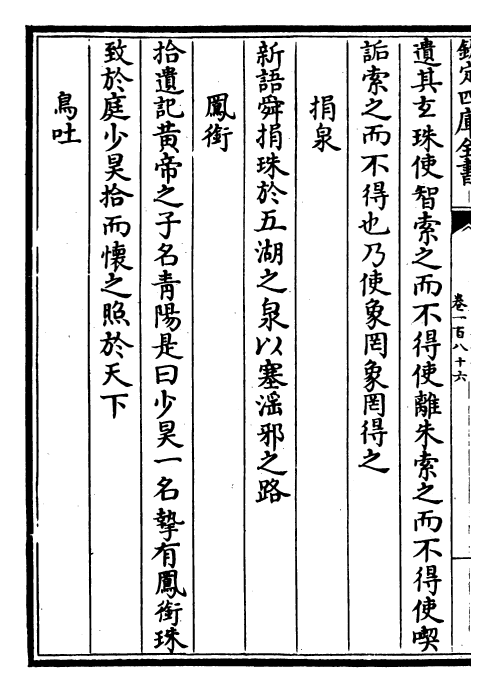 欽定四庫全書
卷一百八十六
遺其𤣥珠使智索之而不得使離朱索之而不得使喫
詬索之而不得也乃使象罔象罔得之
捐泉
新語舜捐珠於五湖之泉以塞滛邪之路
鳳銜
拾遺記黄帝之子名青陽是曰少昊一名摯有鳳銜珠
致於庭少昊拾而懷之照於天下
鳥吐